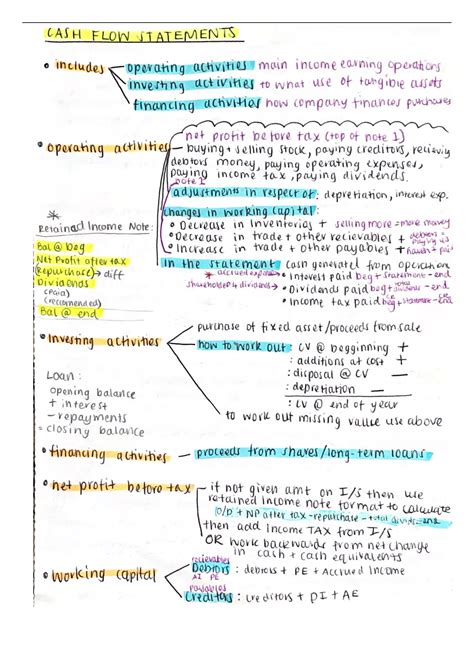 CASH FLOW STATEMENTS
• includes
operating activities main income earning operations
investing activities to what use of tangible assets
financing activities how company finances purchases
net profit before tax (top of note 1)
• operating activities
buying + selling stock, paying creditors, recieving
debtors money, paying operating expenses,
paying income tax, paying dividends.
note 1
adjustments in respect of: depretiation, interest exp.
changes in working capital:
• Decrease in Inventories + selling more = more money
• Decrease in trade + other recievables + debtors = paying us
• Increase in trade + other payables +
in the statement cash generated from operation
accrued expense • Interest paid beg + statement - end
shareholders 4 dividends • Dividends paid beg + total dividends - end
• Income tax paid beg + statement - end
* Retained Income Note:
Bal @ beg
Net Profit after tax
(Repurchase) → diff
Dividends
(paid)
(recommended)
Bal @ end
• Investing activities
purchase of fixed asset/proceeds from sale
how to work out: CV @ begginning +
: additions at cost +
: disposal @ CV —
: depretiation —
: CV @ end of year
to work out missing value use above
Loan:
opening balance
+ interest
- repayments
= closing balance
• financing activities - proceeds from shares/long-term loans
• net profit before tax
if not given amt on I/S then use
retained income note format to calculate
O/B + NP after tax - repurchase - total divids = end
then add Income TAX from I/S
OR work backwards from net change
in cash + cash equivalents
• working capital
recievables
Debtors : debtors + PE + Accrued Income
payables
Creditors : creditors + PI + AE